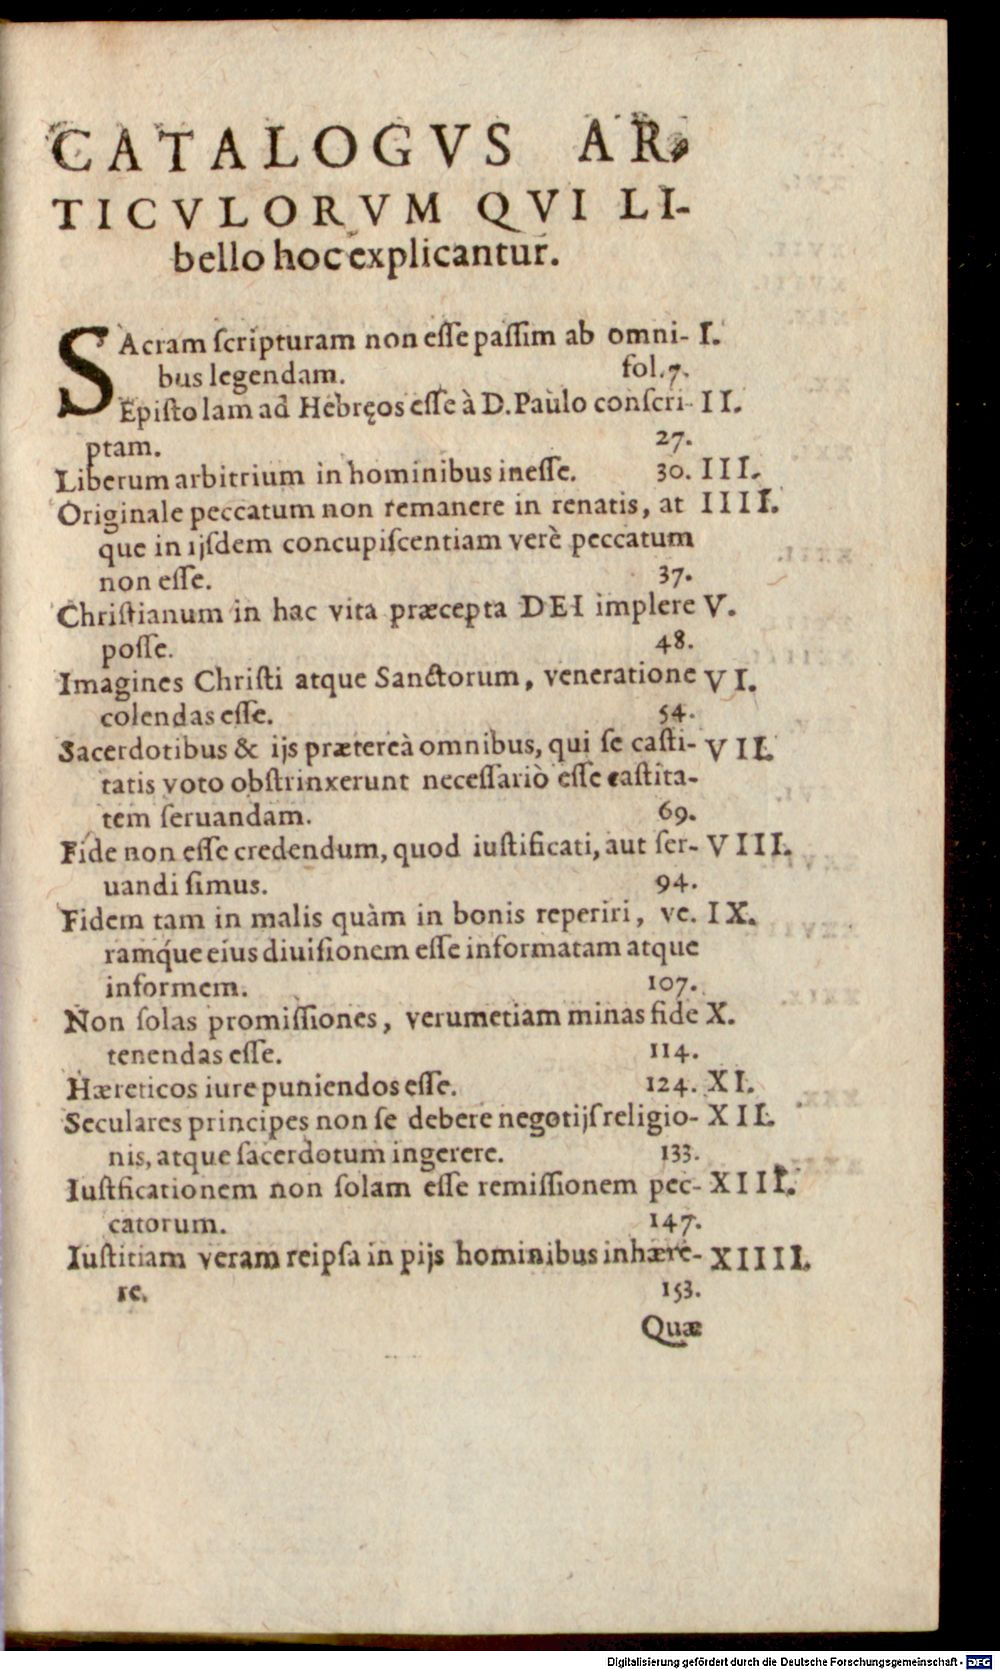 CATALOGVS AR-
TICVLORVM QVI LI-
bello hoc explicantur.
SAcram ſcripturam non eſſe paſſim ab omni- I.
bus legendam. fol.7.
Epiſtolam ad Hebręos eſſe à D. Paulo conſcri- II.
ptam. 27.
Liberum arbitrium in hominibus ineſſe. 30. III.
Originale peccatum non remanere in renatis, at IIII.
que in ijſdem concupiſcentiam verè peccatum
non eſſe. 37.
Chriſtianum in hac vita præcepta DEI implere V.
poſſe. 48.
Imagines Chriſti atque Sanctorum, veneratione VI.
colendas eſſe. 54.
Sacerdotibus & ijs prætereà omnibus, qui ſe caſti- VII.
tatis voto obſtrinxerunt neceſſariò eſſe caſtita-
tem ſeruandam. 69.
Fide non eſſe credendum, quod iuſtificati, aut ſer- VIII.
uandi ſimus. 94.
Fidem tam in malis quàm in bonis reperiri, ve. IX.
ramq́ue eius diuiſionem eſſe informatam atque
informem. 107.
Non ſolas promiſſiones, verumetiam minas fide X.
tenendas eſſe. 114.
Hæreticos iure puniendos eſſe. 124. XI.
Seculares principes non ſe debere negotijſ religio- XII.
nis, atque ſacerdotum ingerere. 133.
Iuſtficationem non ſolam eſſe remiſſionem pec- XIII.
catorum. 147.
Iuſtitiam veram reipſa in pijs hominibus inhære- XIIII.
re. 153.
Quæ
Digitalisierung gefördert durch die Deutsche Forschungsgemeinschaft - DFG